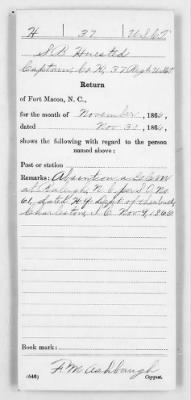 H 37 U.S.C.T.
S. B. Huested
Captain, Co. K, 37 Regt U.S.C.T
Return
of Fort Macon, N. C.,
for the month of November, 1866,
dated Nov 31, 1866,
shows the following with regard to the person
named above:
Post or station
Remarks: Absent on a G.C.M.
at Raleigh, N.C. per S.O. No
61, dated H.Q. Dept of the South
Charleston, S.C. Nov 9, 1866
Book mark:
F. M. Ashbaugh
(646) Copyist.